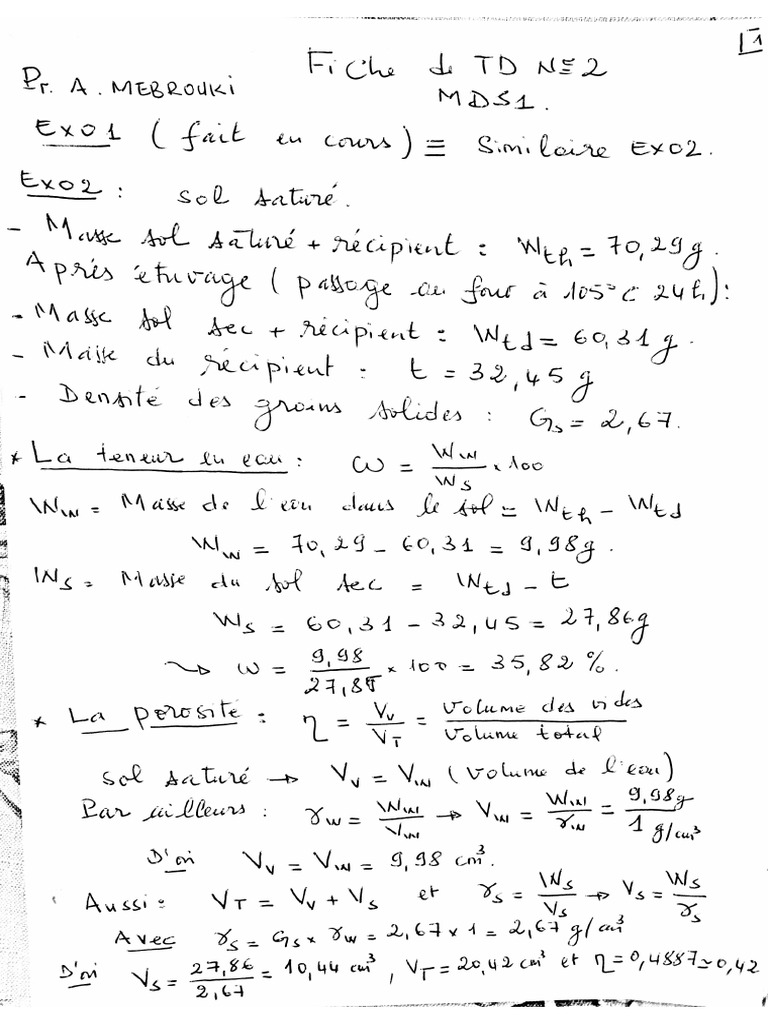 1
Fiche de TD N=2
Pr. A. MEBROUKI
MDS1.
Exo1 (fait en cours) ≡ Similaire Exo2.
Exo2 : Sol saturé.
- Masse sol saturé + récipient : Wth = 70,29g.
Aprés étuvage (passage au four à 105°C 24h):
- Masse sol sec + récipient : Wtd = 60,31g.
- Masse du récipient : t = 32,45g
- Densité des grains solides : Gs = 2,67.
* La teneur en eau : ω = Ww/Ws × 100
Ww = Masse de l'eau dans le sol = Wth - Wtd
Ww = 70,29 - 60,31 = 9,98g.
Ws = Masse du sol sec = Wtd - t
Ws = 60,31 - 32,45 = 27,86g
⤳ ω = 9,98/27,86 × 100 = 35,82 %.
* La porosité : η = Vv/VT = Volume des vides/Volume total
Sol saturé → Vv = Vw (Volume de l'eau)
Par ailleurs : γw = Ww/Vw → Vw = Ww/γw = 9,98g/1 g/cm³
D'où Vv = Vw = 9,98 cm³.
Aussi : VT = Vv + Vs et γs = Ws/Vs → Vs = Ws/γs
Avec γs = Gs × γw = 2,67 × 1 = 2,67 g/cm³
D'où Vs = 27,86/2,67 = 10,44 cm³, VT = 20,42 cm³ et η = 0,4887 ≃ 0,42